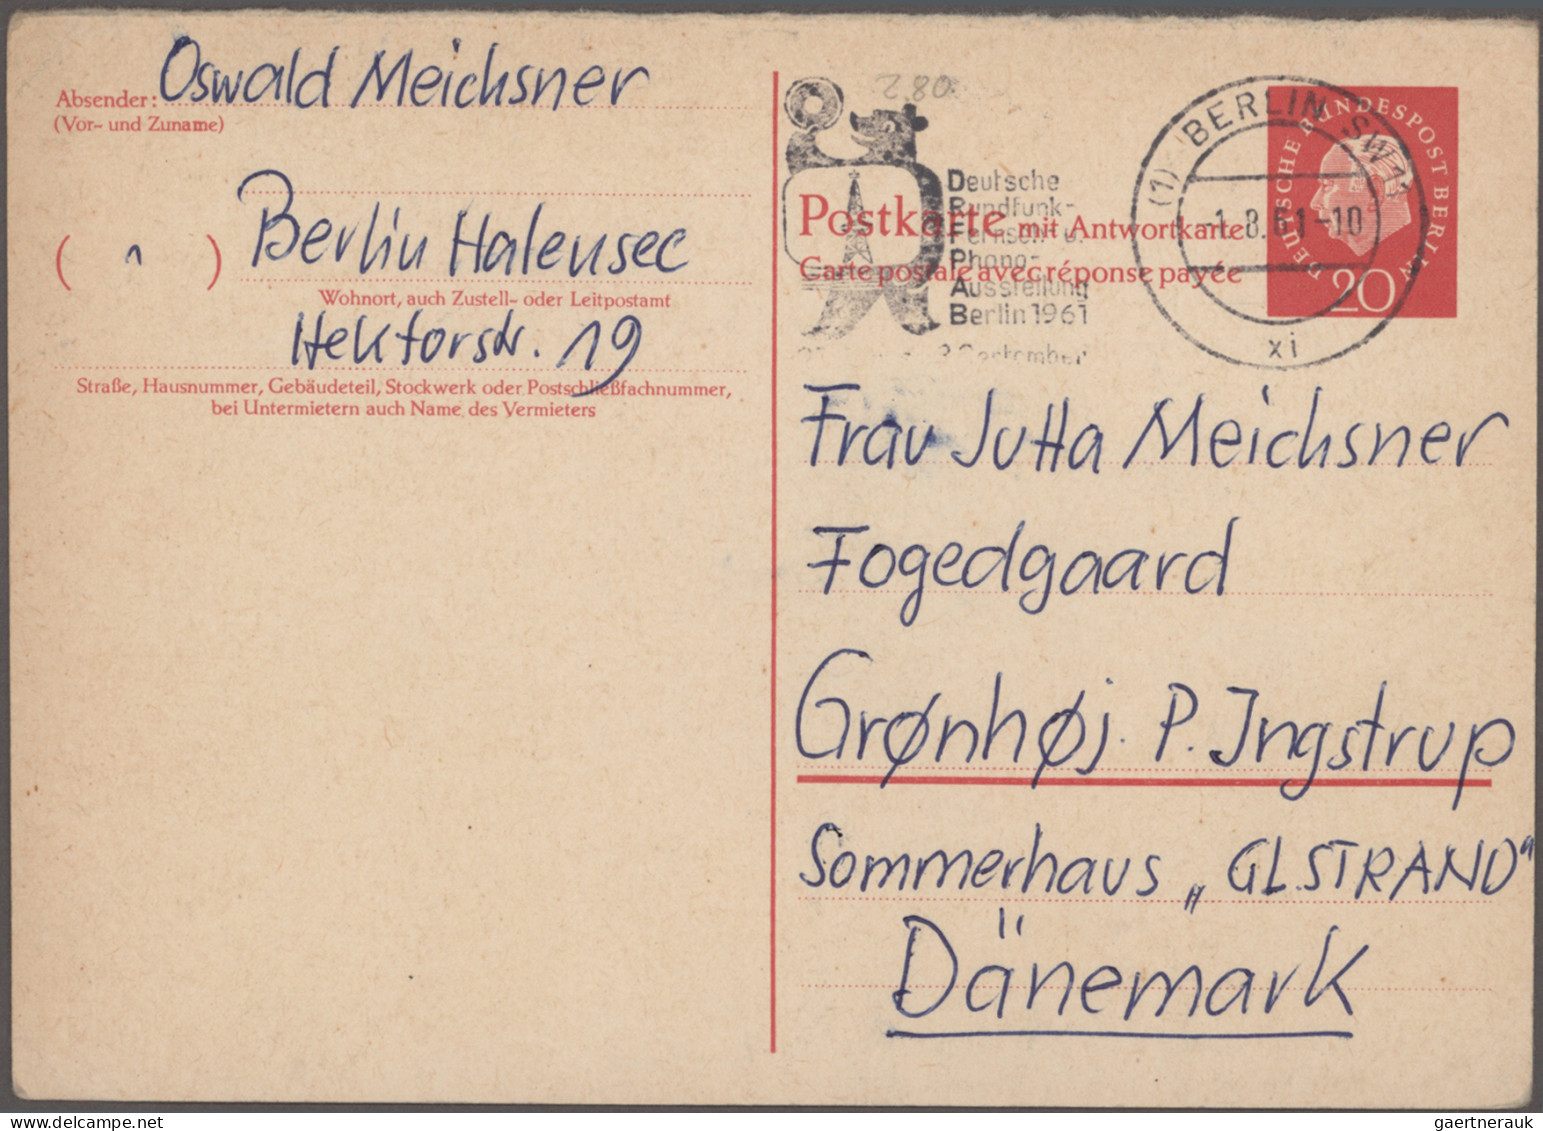 Absender: Oswald Meichsner
(Vor- und Zuname)
( 1 ) Berlin Halensee
Wohnort, auch Zustell- oder Leitpostamt
Hektorstr. 19
Straße, Hausnummer, Gebäudeteil, Stockwerk oder Postschließfachnummer,
bei Untermietern auch Name des Vermieters
280
Deutsche
Rundfunk-
Fernseh- u.
Phono-
Ausstellung
Berlin 1961
September
(1) BERLIN SW 11
-1.8.61-10
xi
DEUTSCHE BUNDESPOST BERLIN
20
Postkarte mit Antwortkarte
Carte postale avec réponse payée
Frau Jutta Meichsner
Fogedgaard
Grønhøj. P. Ingstrup
Sommerhaus „GL.STRAND“
Dänemark
gaertnerauk